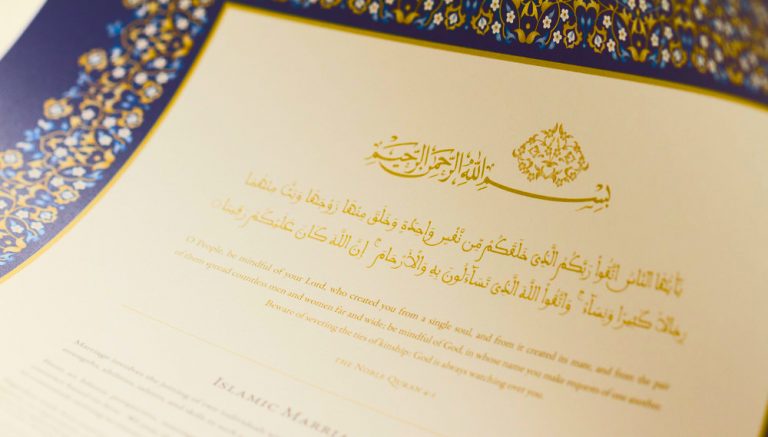 بِسْمِ اللهِ الرَّحْمٰنِ الرَّحِيمِ
يَٰٓأَيُّهَا النَّاسُ اتَّقُوا۟ رَبَّكُمُ الَّذِى خَلَقَكُم مِّن نَّفْسٍ وَٰحِدَةٍ وَخَلَقَ مِنْهَا زَوْجَهَا وَبَثَّ مِنْهُمَا
رِجَالًا كَثِيرًا وَنِسَآءً ۚ وَاتَّقُوا۟ اللَّهَ الَّذِى تَسَآءَلُونَ بِهِ وَالْأَرْحَامَ ۚ إِنَّ اللَّهَ كَانَ عَلَيْكُمْ رَقِيبًا
O People, be mindful of your Lord, who created you from a single soul, and from it created its mate, and from the pair
of them spread countless men and women far and wide; be mindful of God, in whose name you make requests of one another.
Beware of severing the ties of kinship: God is always watching over you.
THE NOBLE QURAN 4:1
ISLAMIC MARRI
Marriage involves the joining of two